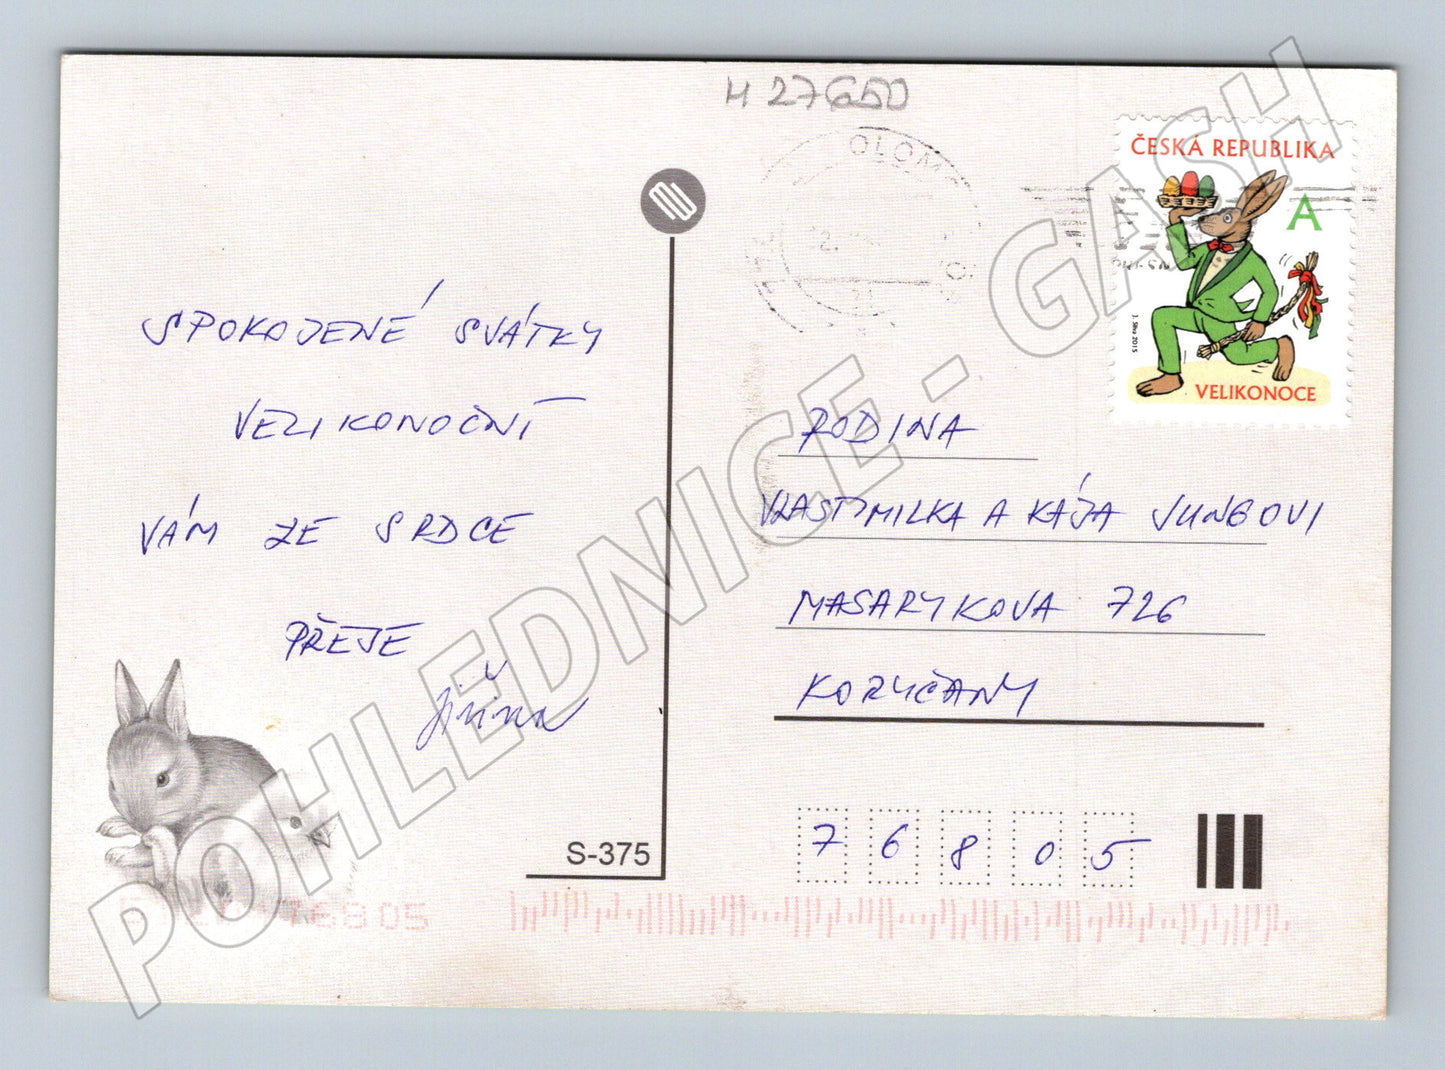 H 27650
OLOM
ČESKÁ REPUBLIKA
A
J. Sliva 2015
VELIKONOCE
SPOKOJENÉ SVÁTKY
VELIKONOČNÍ
VÁM ZE SRDCE
PŘEJE
Jiřina
RODINA
VLASTIMILKA A KÁJA JUNGOVI
MASARYKOVA 726
KORYČANY
S-375
768 05
76805
POHLEDNICE - GASH